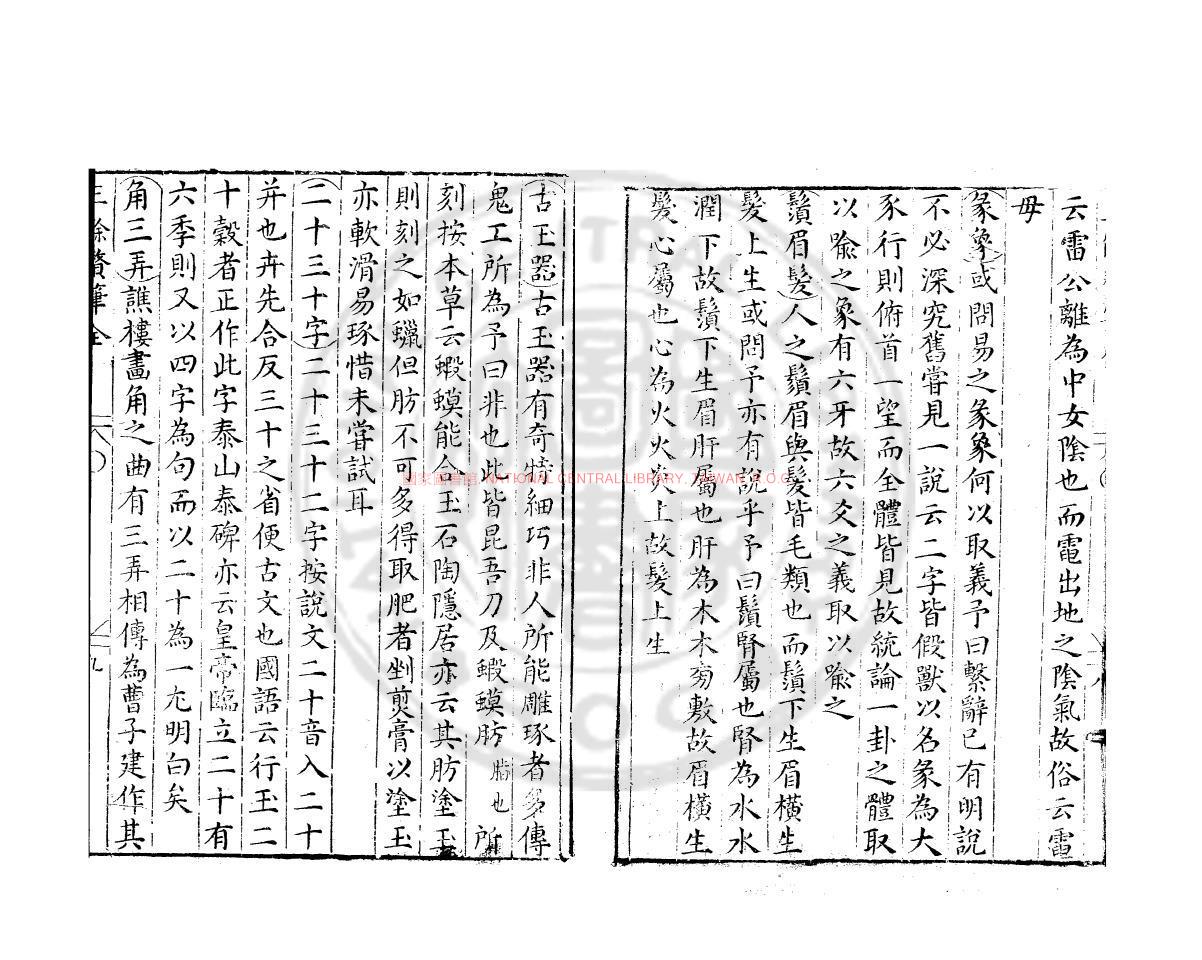 云雷公離為中女陰也而電出地之陰氣故俗云電
母
彖象或問易之彖象何以取義予曰繫辭已有明說
不必深究舊嘗見一說云二字皆假獸以名彖為大
豕行則俯首一望而全體皆見故統論一卦之體取
以喻之象有六牙故六爻之義取以喻之
鬚眉髮人之鬚眉與髮皆毛類也而鬚下生眉橫生
髮上生或問予亦有說乎予曰鬚腎屬也腎為水水
潤下故鬚下生眉肝屬也肝為木木旁敷故眉橫生
髮心屬也心為火火炎上故髮上生
古玉器古玉器有奇特細巧非人所能雕琢者多傳
鬼工所為予曰非也此皆昆吾刀及蝦蟆肪 所
刻按本草云蝦蟆能合玉石陶隱居亦云其肪塗玉
則刻之如蠟但肪不可多得取肥者剉煎膏以塗玉
亦軟滑易琢惜未嘗試耳
二十三十字二十三十二字按說文二十音入二十
并也卉先合反三十之省便古文也國語云行玉二
十穀者正作此字泰山泰碑亦云皇帝臨立二十有
六季則又以四字為句而以二十為一尢明白矣
角三弄譙樓畫角之曲有三弄相傳為曹子建作其
三餘贅筆全
九
國家圖書館 NATIONAL CENTRAL LIBRARY, TAIWAN, R.O.C.